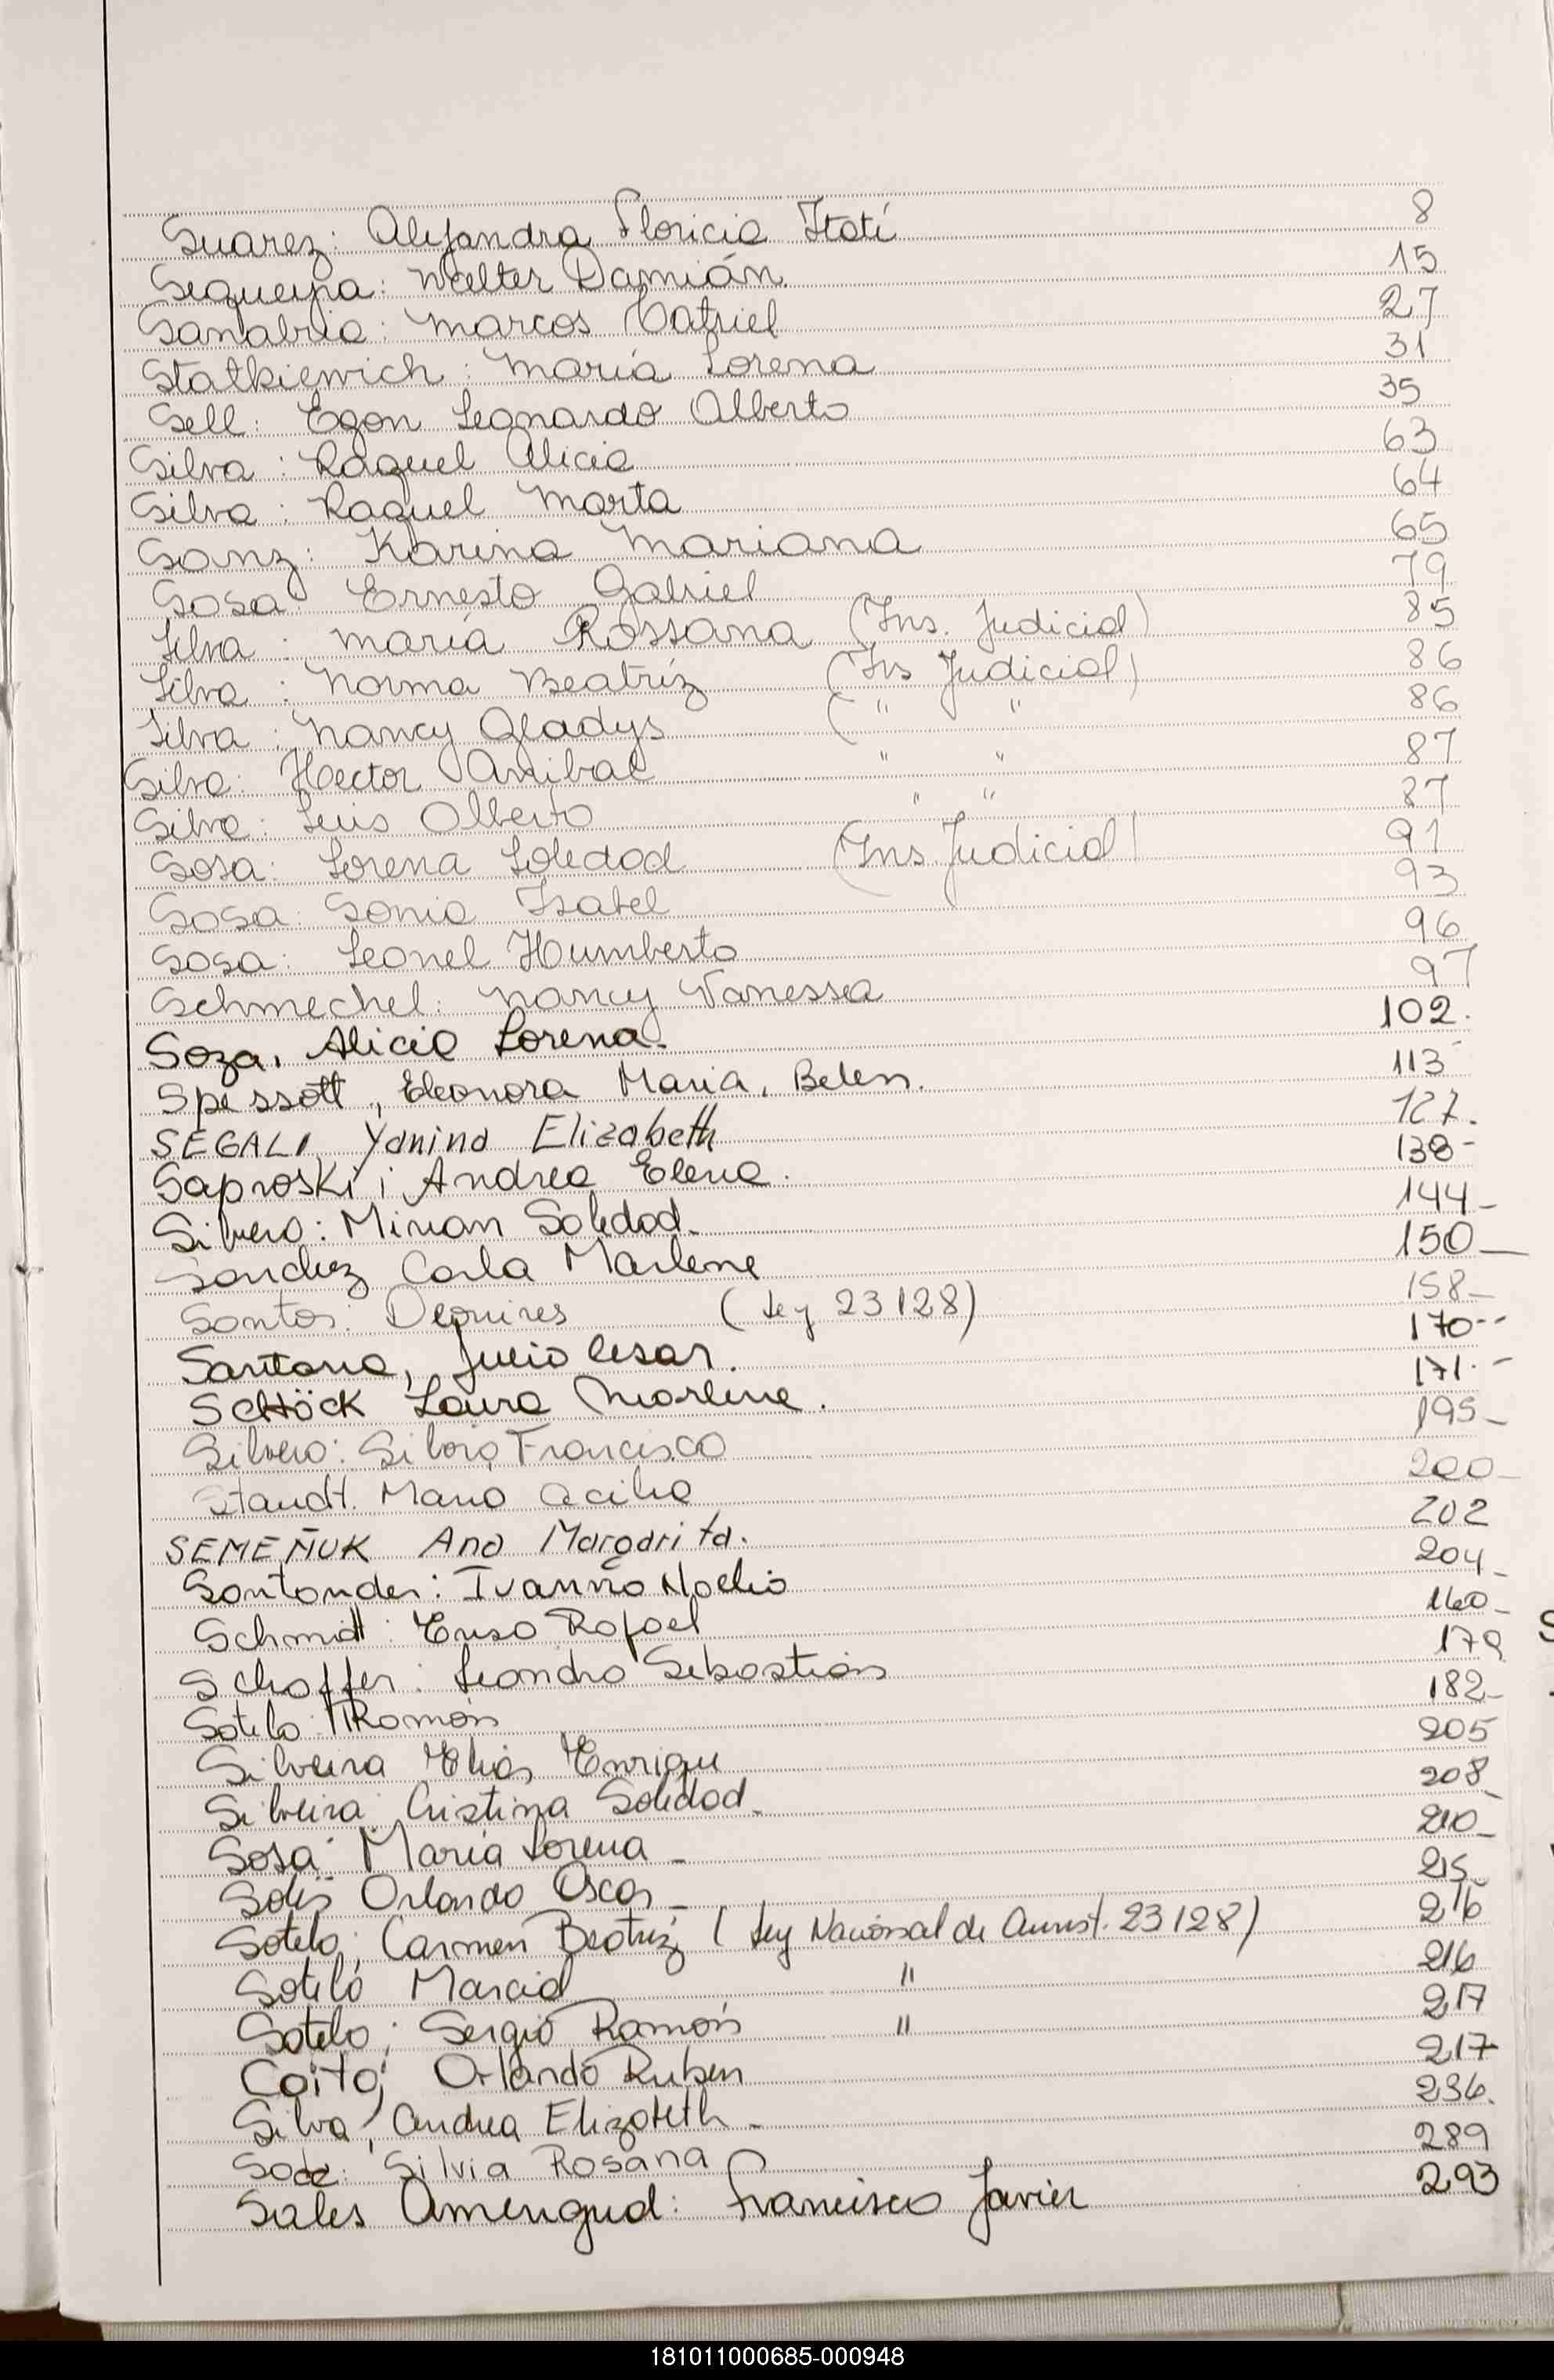 Suarez: Alejandra Floricia Itatí 8
Sequeyra: Walter Damián. 15
Sanabria: Marcos Catriel 27
Statkiewich: María Lorena 31
Sell: Egon Leonardo Alberto 35
Silva: Raquel Alicia 63
Silva: Raquel Marta 64
Sanz: Karina Mariana 65
Sosa: Ernesto Gabriel 79
Silva: María Rossana (Ins. Judicial) 85
Silva: Norma Beatríz (Ins Judicial) 86
Silva: Nancy Gladys ( " " 86
Silva: Hector Anibal " " 87
Silva: Luis Alberto " " 87
Sosa: Lorena Soledad (Ins. Judicial) 91
Sosa: Sonia Isabel 93
Sosa: Leonel Humberto 96
Schmechel: Nancy Vanessa 97
Soza, Alicia Lorena. 102.
Spessott, Eleonora Maria, Belen. 113-
SEGALI, Yanina Elizabeth 127.
Saproski; Andrea Elena. 138-
Silvero: Mirian Soledad. 144-
Sanchez Carla Marlene 150-
Santos: (Ley 23128) 158-
Santana, Julio Cesar. 170--
SCHöCK Laura Marlene. 171.-
Silvero: Silvio Francisco 195-
Staudt. Mario 200-
SEMEÑUK Ana Margarita. 202
Santander: Noelia 204-
Schmidt: Enso Rafael 160-
Schaffer: Leandro Sebastián 179
Sotelo: Ramón 182-
Silveira Elias Enrique 205
Silveira: Cristina Soledad. 208-
Sosa María Lorena - 210-
Solis Orlando Oscar - 215-
Sotelo; Carmen Beatriz (Ley Nacional de Amnist. 23128) 216
Sotelo Marcial " 216
Sotelo; Sergio Ramón " 217
Coito; Orlando Ruben 217
Silva, Andrea Elizabeth - 236.
Silvia Rosana 289
Sales Amengual: Francisco Javier 293
181011000685-000948